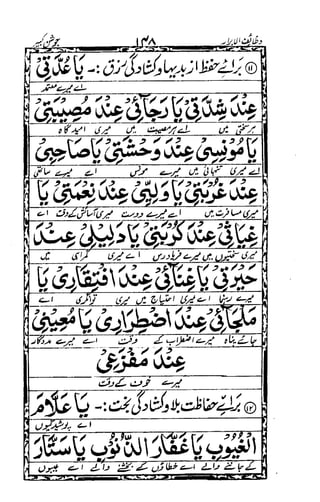 وظائف الابرار ۱۳۸ جوشن کبیر
⑪ برائے حفظ از بدیہا و کشادگی رزق :- یَا عُدَّتِیْ
اے میرے معتمد
عِنْدَ شِدَّتِیْ یَا رَجَائِیْ عِنْدَ مُصِیْبَتِیْ
ہر سختی میں اے ہر مصیبت میں میری امید گاہ
یَا مُوْنِسِیْ عِنْدَ وَحْشَتِیْ یَا صَاحِبِیْ
اے میری تنہائی میں میرے مونس اے میرے ساتھی
عِنْدَ غُرْبَتِیْ یَا وَلِیِّیْ عِنْدَ نِعْمَتِیْ یَا
میری مسافرت میں اے میرے دوست میری آسائش کے وقت اے
غِیَاثِیْ عِنْدَ كُرْبَتِیْ یَا دَلِیْلِیْ عِنْدَ
میری سختیوں میں میرے فریادرس اے میری گمراہی میں
حَیْرَتِیْ یَا غِنَائِیْ عِنْدَ افْتِقَارِیْ یَا
میرے رہنما اے میری احتیاج میں میری تونگری اے
مَلْجَائِیْ عِنْدَ اضْطِرَارِیْ یَا مُعِیْنِیْ
جائے پناہ میرے اضطراب کے وقت اے میرے مددگار
عِنْدَ مَفْزَعِیْ
میرے خوف کے وقت
⑫ برائے حفاظت بلا و کشادگی بخت :- یَا عَلَّامَ
اے پوشیدگیوں
الْغُیُوْبِ یَا غَفَّارَ الذُّنُوْبِ یَا سَتَّارَ
کے جاننے والے اے خطاؤں کے بخشنے والے اے عیبوں